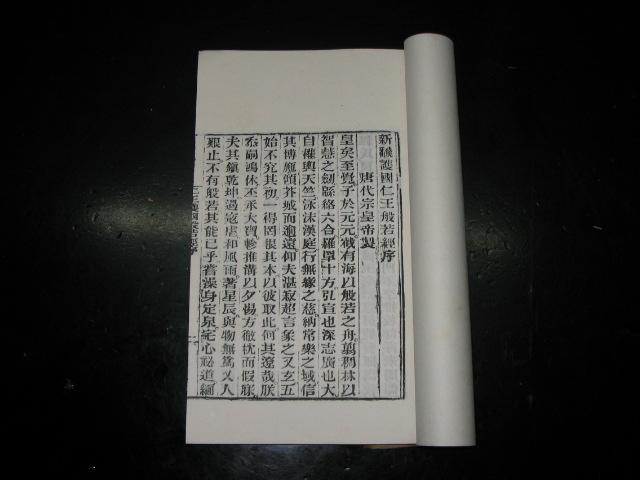 新飜護國仁王般若經序
唐代宗皇帝製
皇矣至覺子於元元截有海以般若之舟翦稠林以
智慧之劒緜絡六合羅罩十方弘宣也深志廣也大
自權輿天竺泳沫漢庭行無緣之慈納常樂之域信
其博施碩芥城而逈遠仰夫湛寂超言象之又玄五
始不究其初一得罔根其本以彼取此何其遼哉朕
忝嗣鴻休丕承大寶軫推溝以夕惕方徹枕而假寐
夫其鎮乾坤遏寇虐和風雨著星辰與物無爲乂人
艱止不有般若其能已乎嘗澡身定泉宅心祕道緬